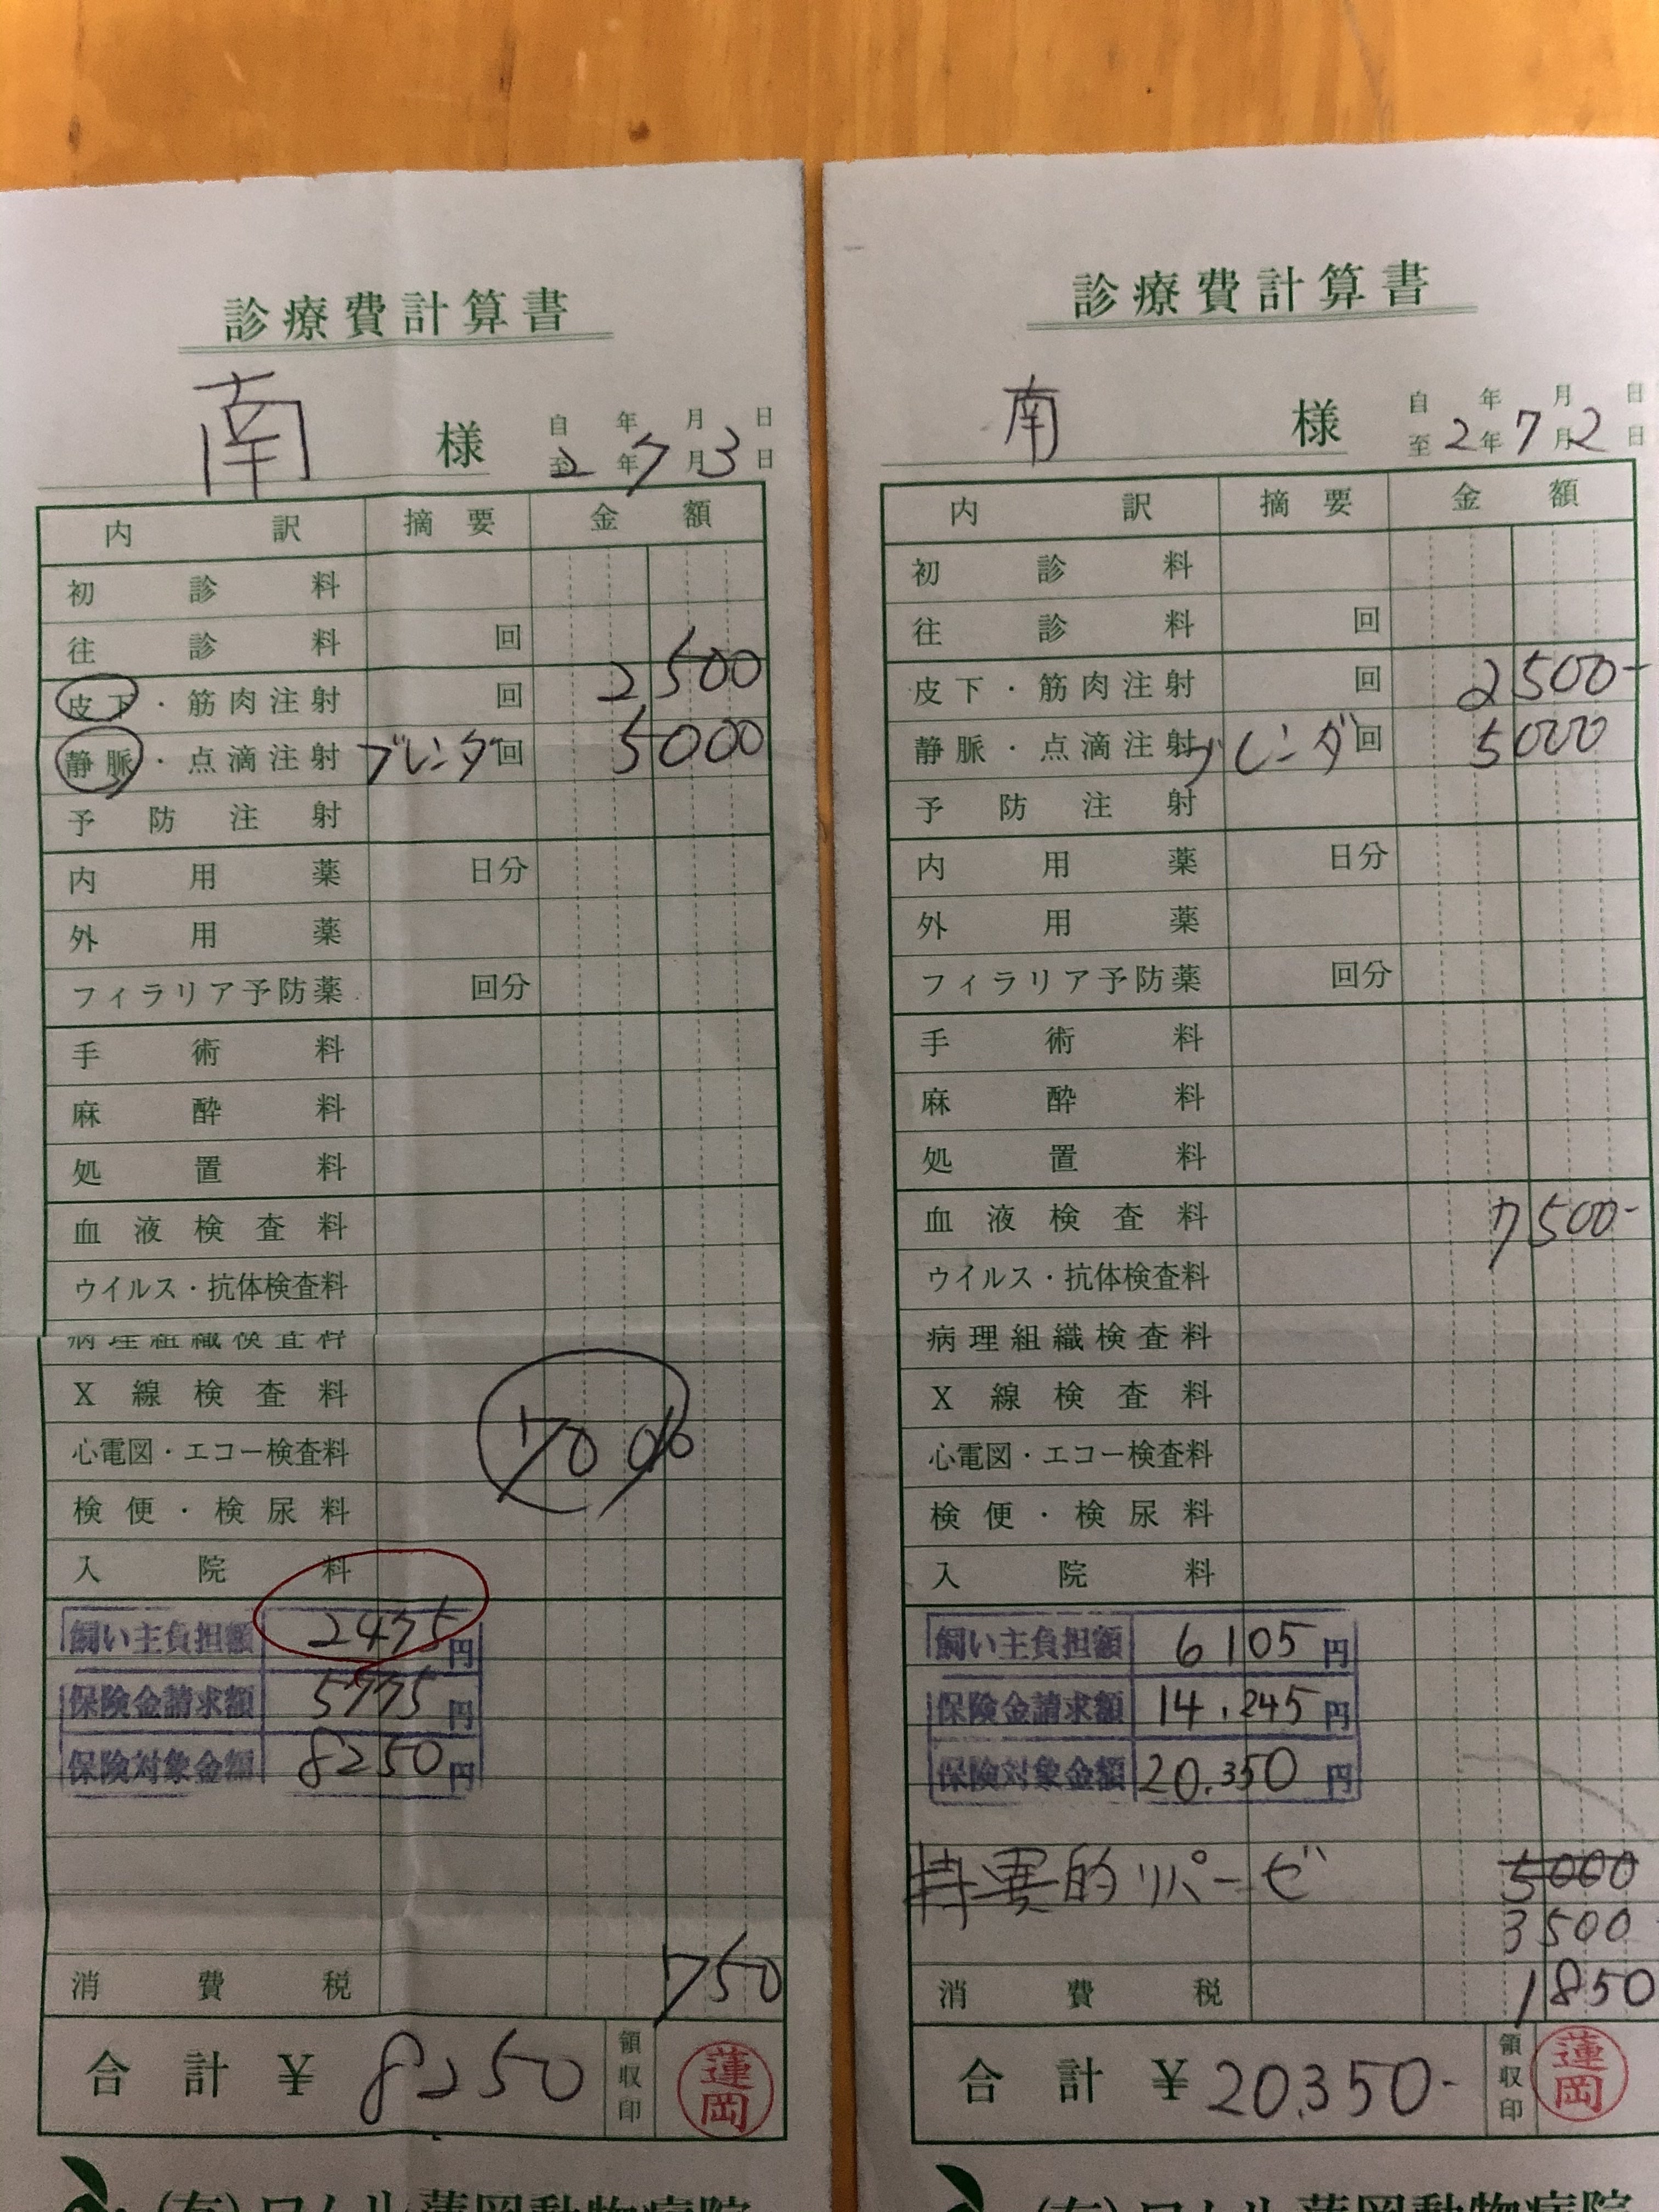 診療費計算書
南 様 自 年 月 日
至 2年7月3日
内訳 摘要 金額
初診料
往診料 回
皮下・筋肉注射 回 2500
静脈・点滴注射 ブレンダ 回 5000
予防注射
内用薬 日分
外用薬
フィラリア予防薬 回分
手術料
麻酔料
処置料
血液検査料
ウイルス・抗体検査料
病理組織検査料
X線検査料
70%
心電図・エコー検査料
検便・検尿料
入院料
飼い主負担額 2475円
保険金請求額 5775円
保険対象金額 8250円
消費税 750
合計 ¥ 8250 領収印 蓮岡
診療費計算書
南 様 自 年 月 日
至 2年7月2日
内訳 摘要 金額
初診料
往診料 回
皮下・筋肉注射 回 2500-
静脈・点滴注射 ブレンダ 回 5000
予防注射
内用薬 日分
外用薬
フィラリア予防薬 回分
手術料
麻酔料
処置料
血液検査料 7500-
ウイルス・抗体検査料
病理組織検査料
X線検査料
心電図・エコー検査料
検便・検尿料
入院料
飼い主負担額 6105円
保険金請求額 14,245円
保険対象金額 20,350円
特異的リパーゼ 5000
3500
消費税 1850
合計 ¥ 20,350- 領収印 蓮岡